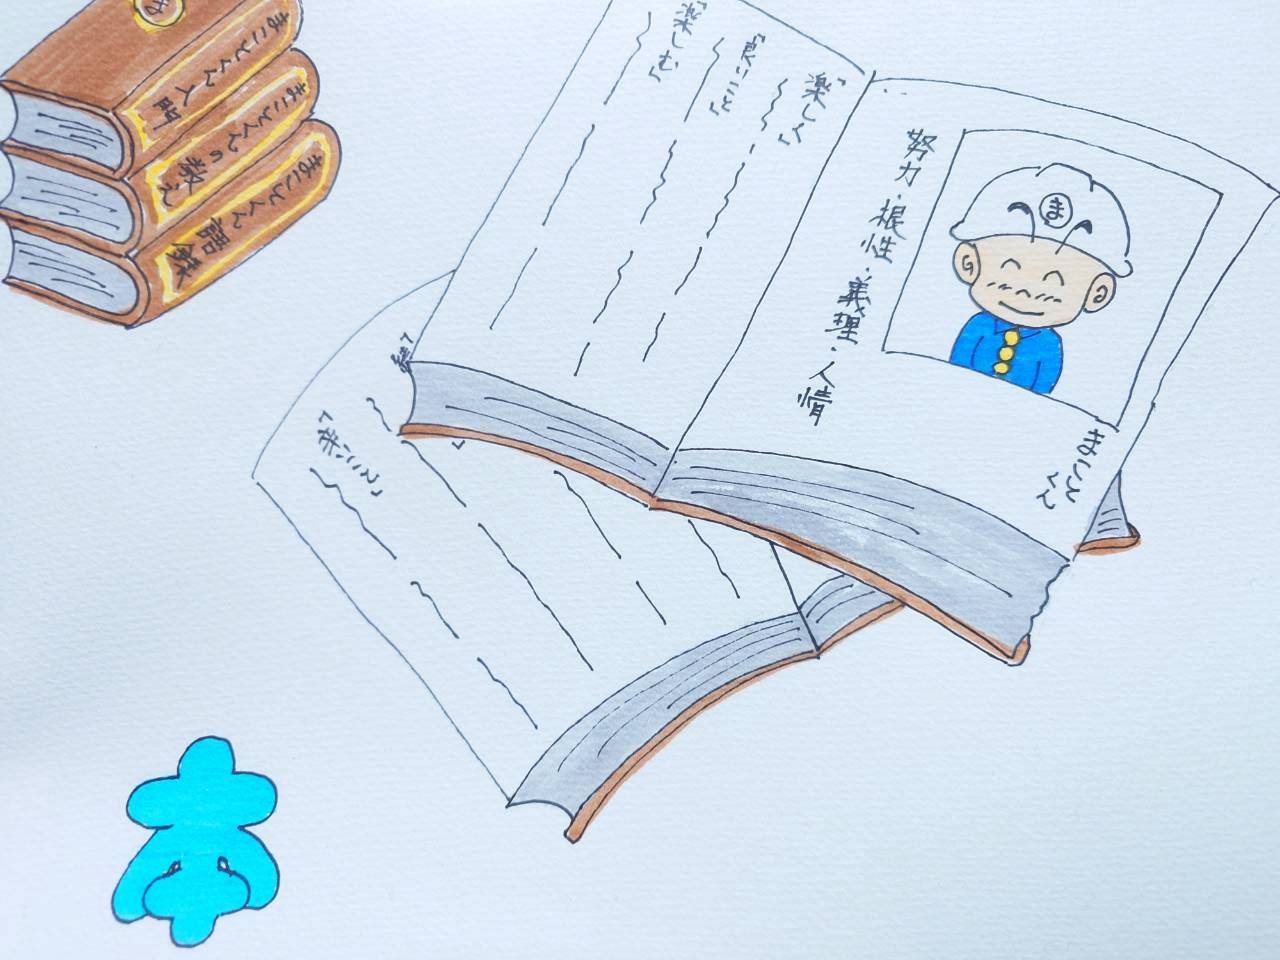 まことくん入門
まことくんの教え
まことくん語録
ま
まことくん
努力・根性・義理・人情
「楽しく」
「良いこと」
「楽しむ」